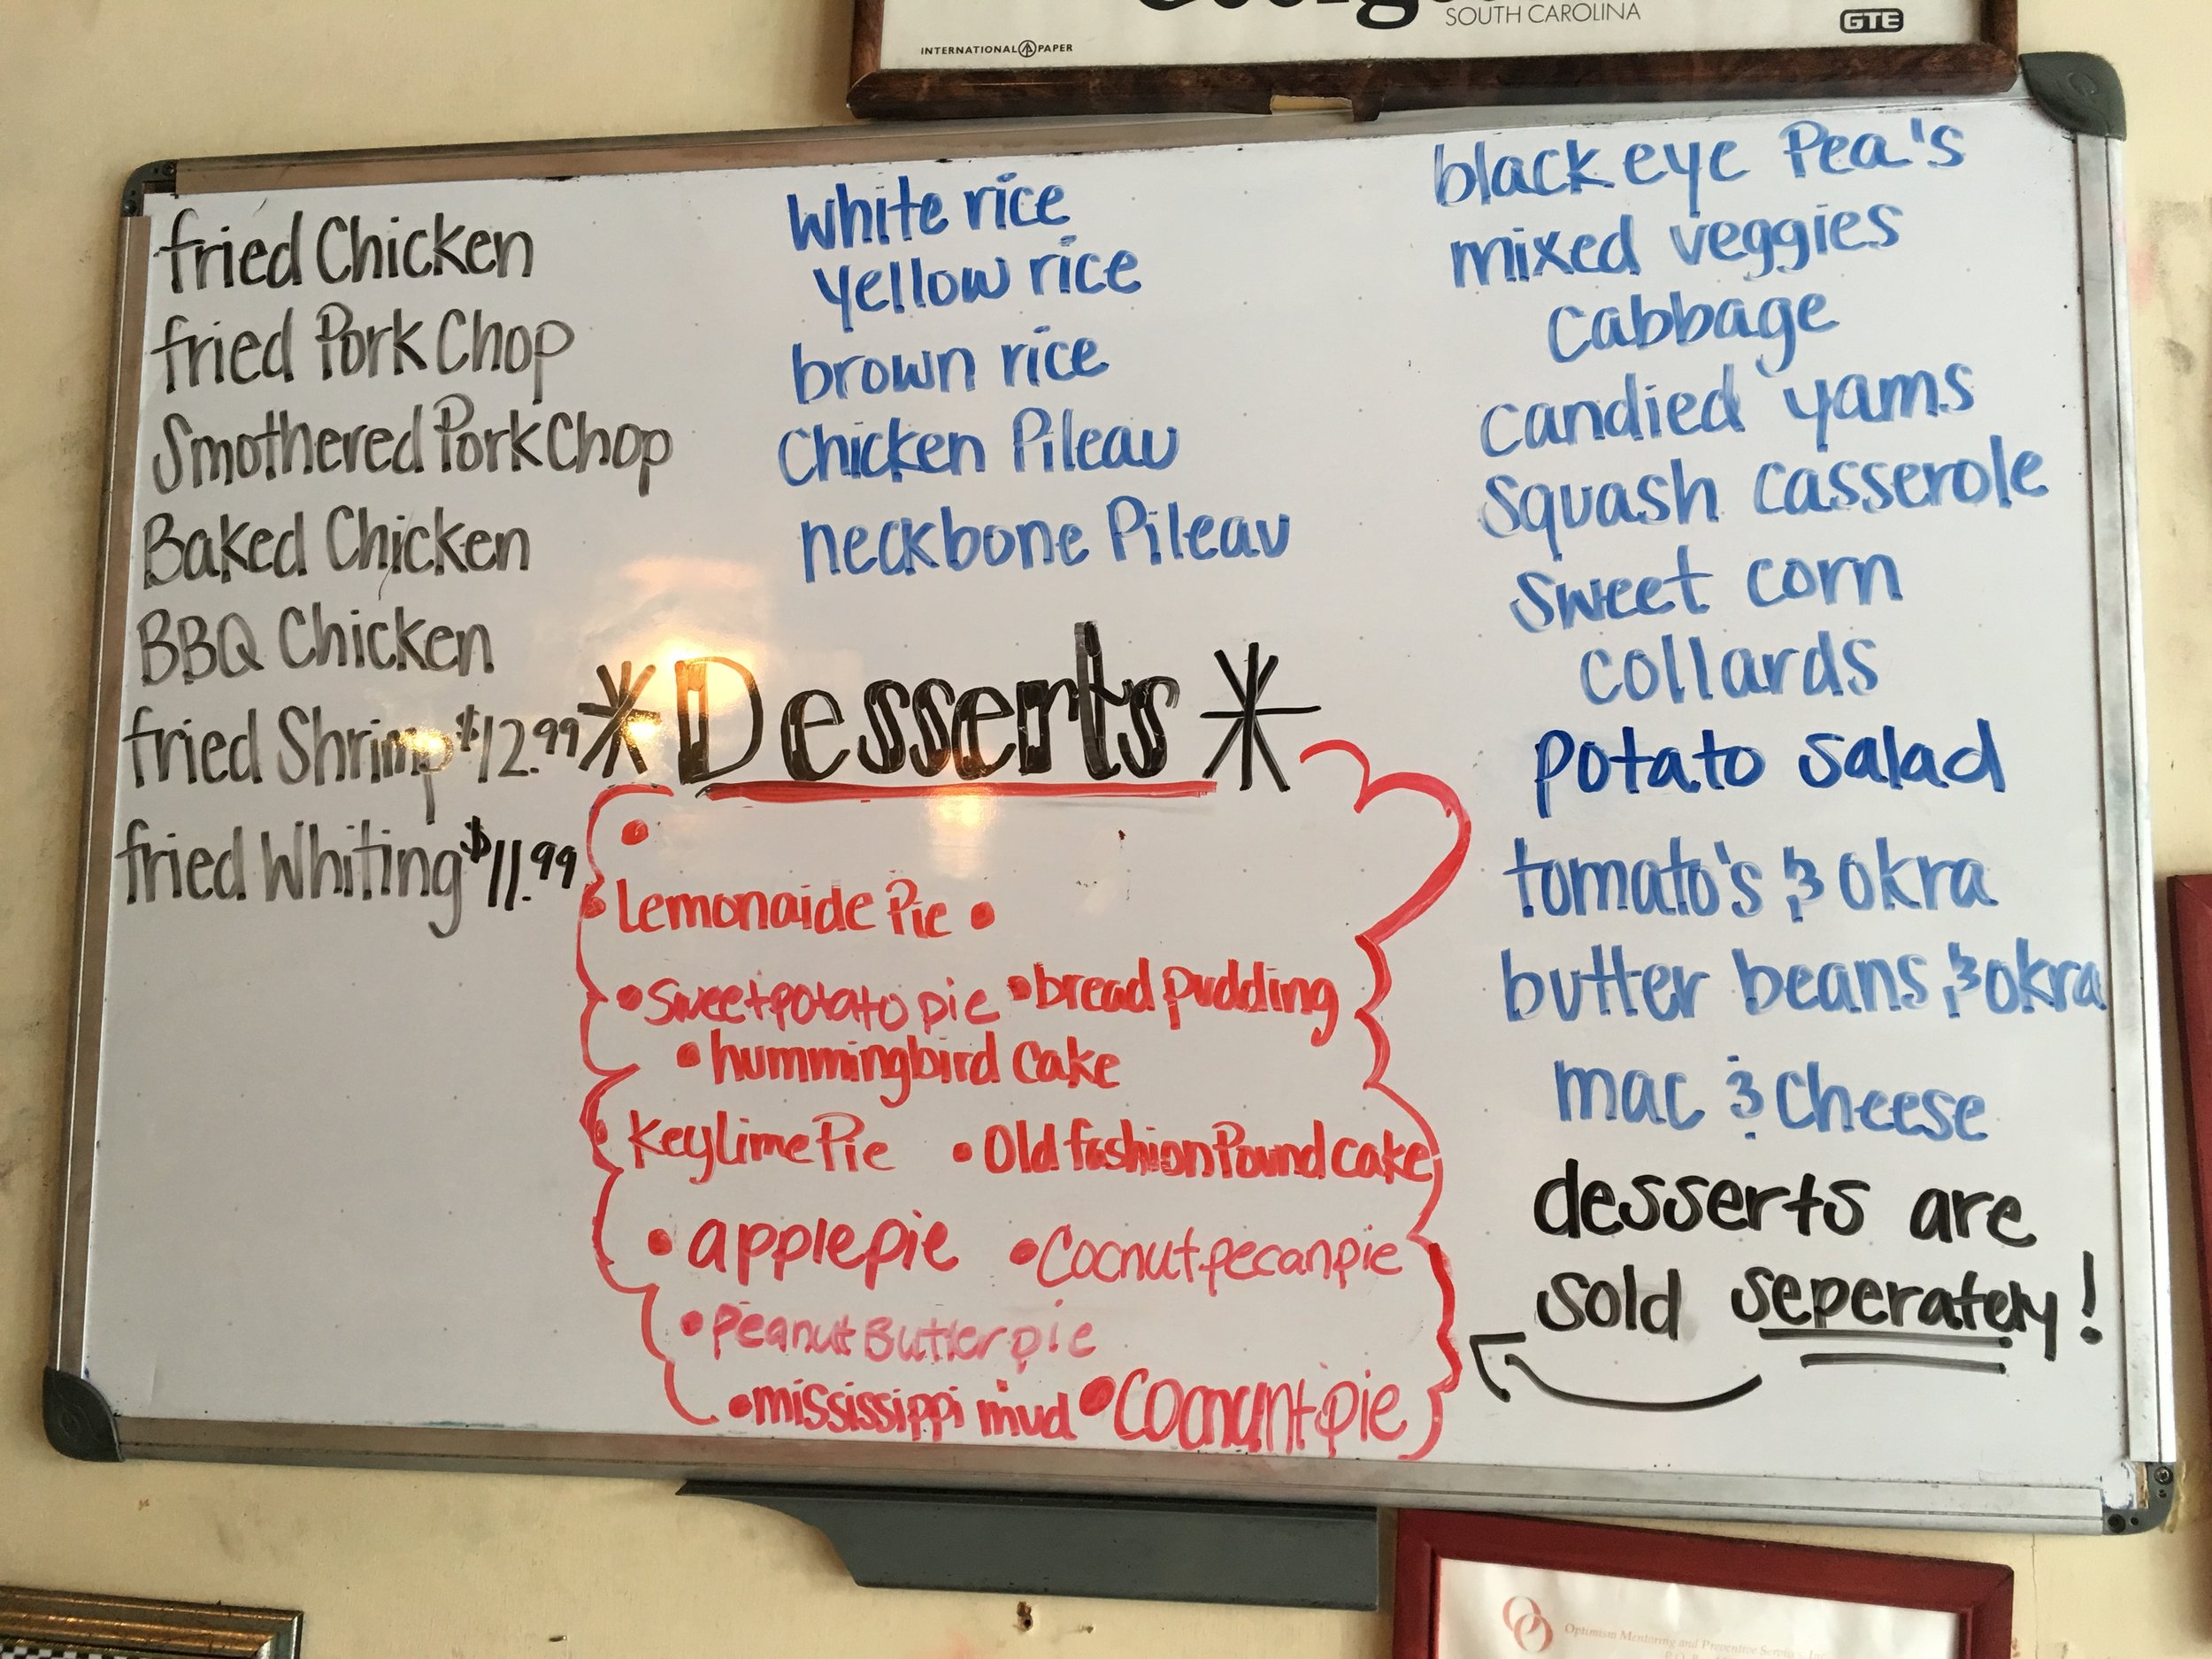 SOUTH CAROLINA
GTE
INTERNATIONAL PAPER
fried Chicken
fried Pork Chop
Smothered Pork Chop
Baked Chicken
BBQ Chicken
fried Shrimp $12.99
fried Whiting $11.99
White rice
Yellow rice
brown rice
Chicken Pileau
neckbone Pileau
*Desserts*
•
• Lemonaide Pie •
• Sweet potato pie • bread pudding
• hummingbird Cake
• Key Lime Pie • Old fashion Pound cake
• apple pie • Cocnut pecan pie
• Peanut Butter pie
• mississippi mud • Cocnunt pie
black eye Pea's
mixed veggies
Cabbage
candied yams
Squash casserole
Sweet corn
collards
potato salad
tomato's & okra
butter beans & okra
mac & cheese
desserts are
sold seperately!
Optimism Mentoring and Preventive Services, Inc